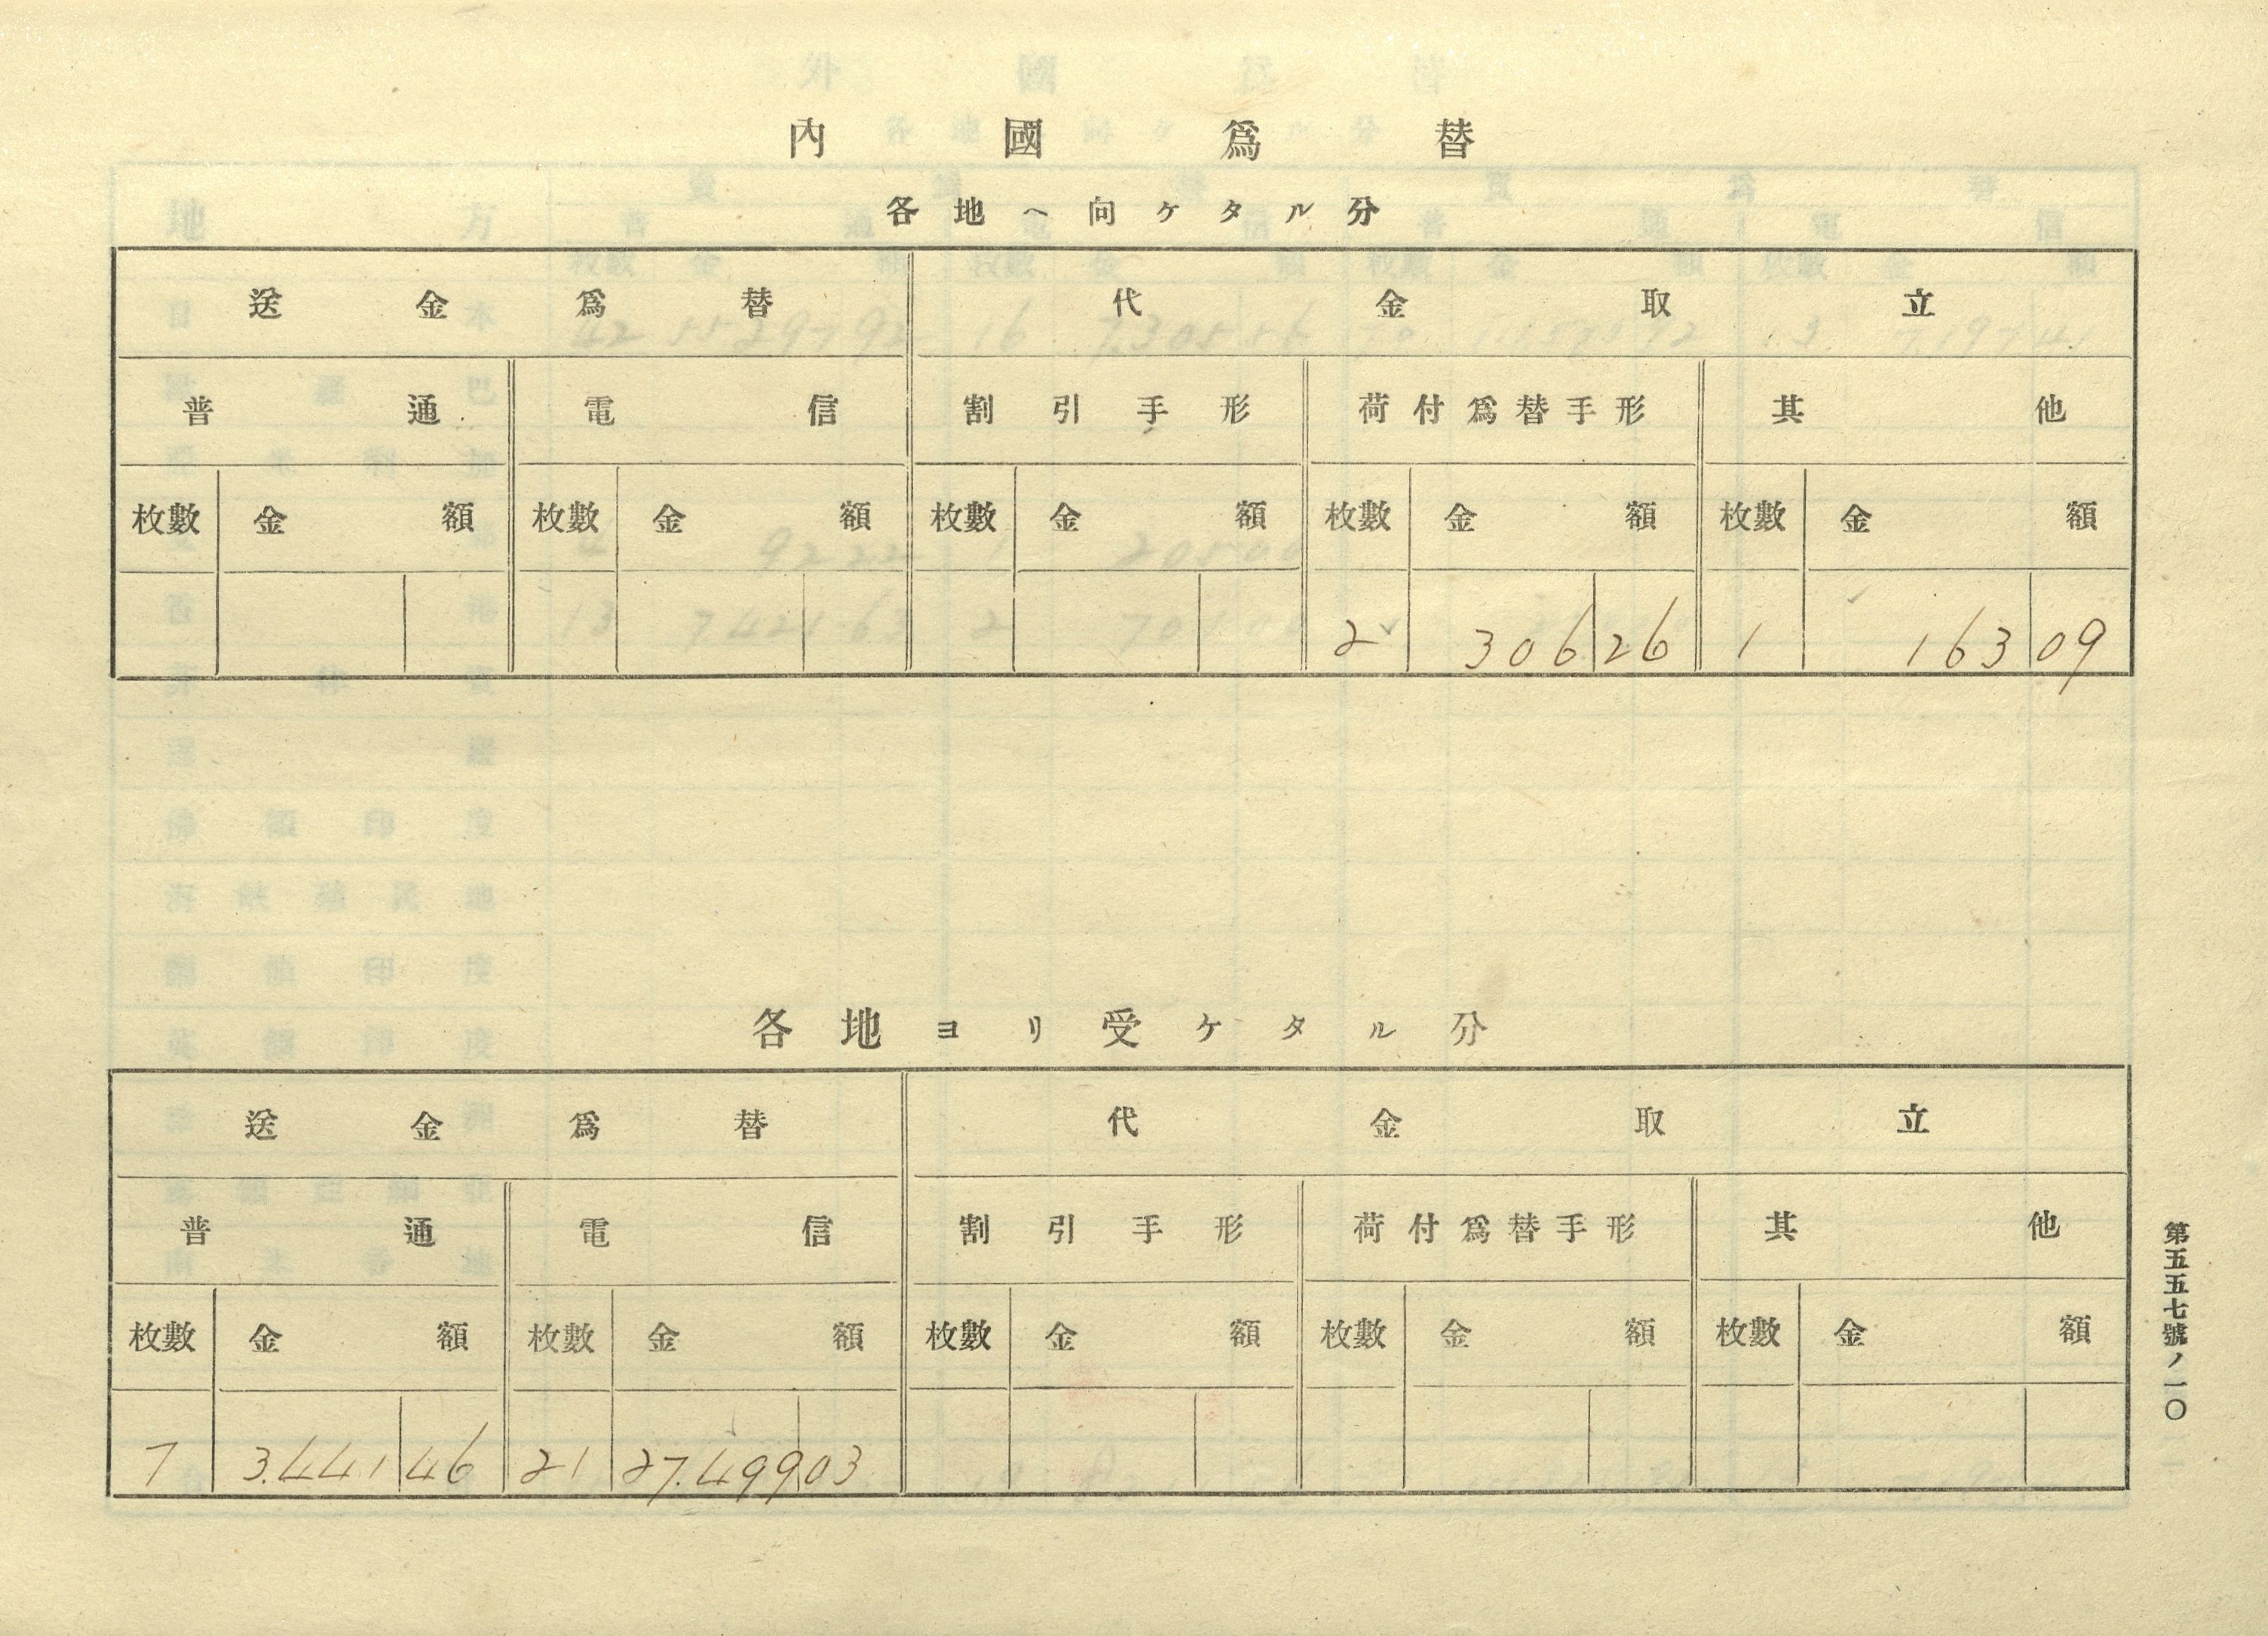 內國爲替
各地ヘ向ケタル分
送金爲替 代金取立
普通 電信 割引手形 荷付爲替手形 其他
枚數 金額 枚數 金額 枚數 金額 枚數 金額 枚數 金額
2 306 26 1 163 09
各地ヨリ受ケタル分
送金爲替 代金取立
普通 電信 割引手形 荷付爲替手形 其他
枚數 金額 枚數 金額 枚數 金額 枚數 金額 枚數 金額
7 3.441 46 21 27.499 03
第五五七號ノ一〇